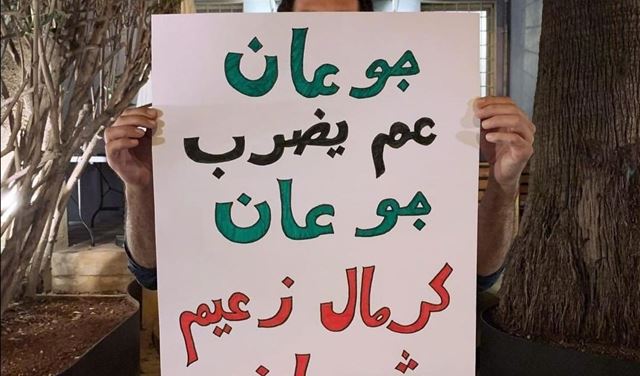 جوعان
عم يضرب
جوعان
كرمال زعيم